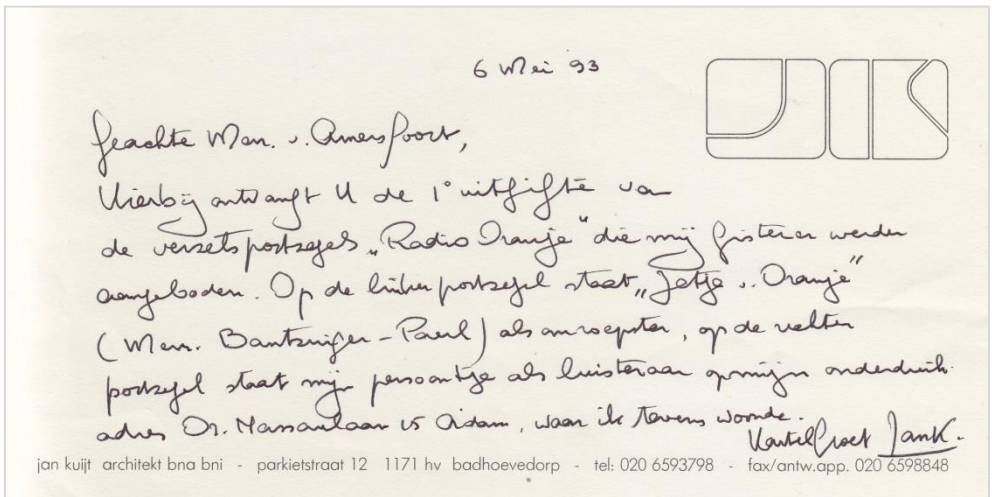 6 Mei 93
JK
Geachte Mevr. v. Amersfoort,
Hierbij ontvangt U de 1e uitgifte van
de verzetspostzegels „Radio Oranje" die mij gisteren werden
aangeboden. Op de linker postzegel staat „Jetje v. Oranje"
(Mevr. Bantzinger-Paerl) als omroepster, op de rechter
postzegel staat mijn persoontje als luisteraar op mijn onderduik-
adres Dr. 15 A'dam, waar ik tevens woonde.
Hartel. Groet JanK.
jan kuijt architekt bna bni - parkietstraat 12 1171 hv badhoevedorp - tel: 020 6593798 - fax/antw.app. 020 6598848